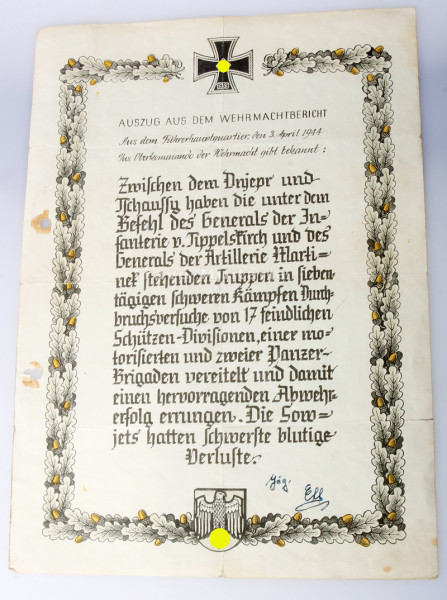 1939
AUSZUG AUS DEM WEHRMACHTBERICHT
Aus dem Führerhauptquartier, den 3. April 1944
Das Oberkommando der Wehrmacht gibt bekannt:
Zwischen dem Dnjepr und
Tschaussy haben die unter dem
Befehl des Generals der In=
fanterie v. Tippelskirch und des
Generals der Artillerie Marti=
nek stehenden Truppen in sieben=
tägigen schweren Kämpfen Durch=
bruchsversuche von 17 feindlichen
Schützen=Divisionen, einer mo=
torisierten und zweier Panzer=
Brigaden vereitelt und damit
einen hervorragenden Abwehr=
erfolg errungen. Die Sow=
jets hatten schwerste blutige
Verluste.